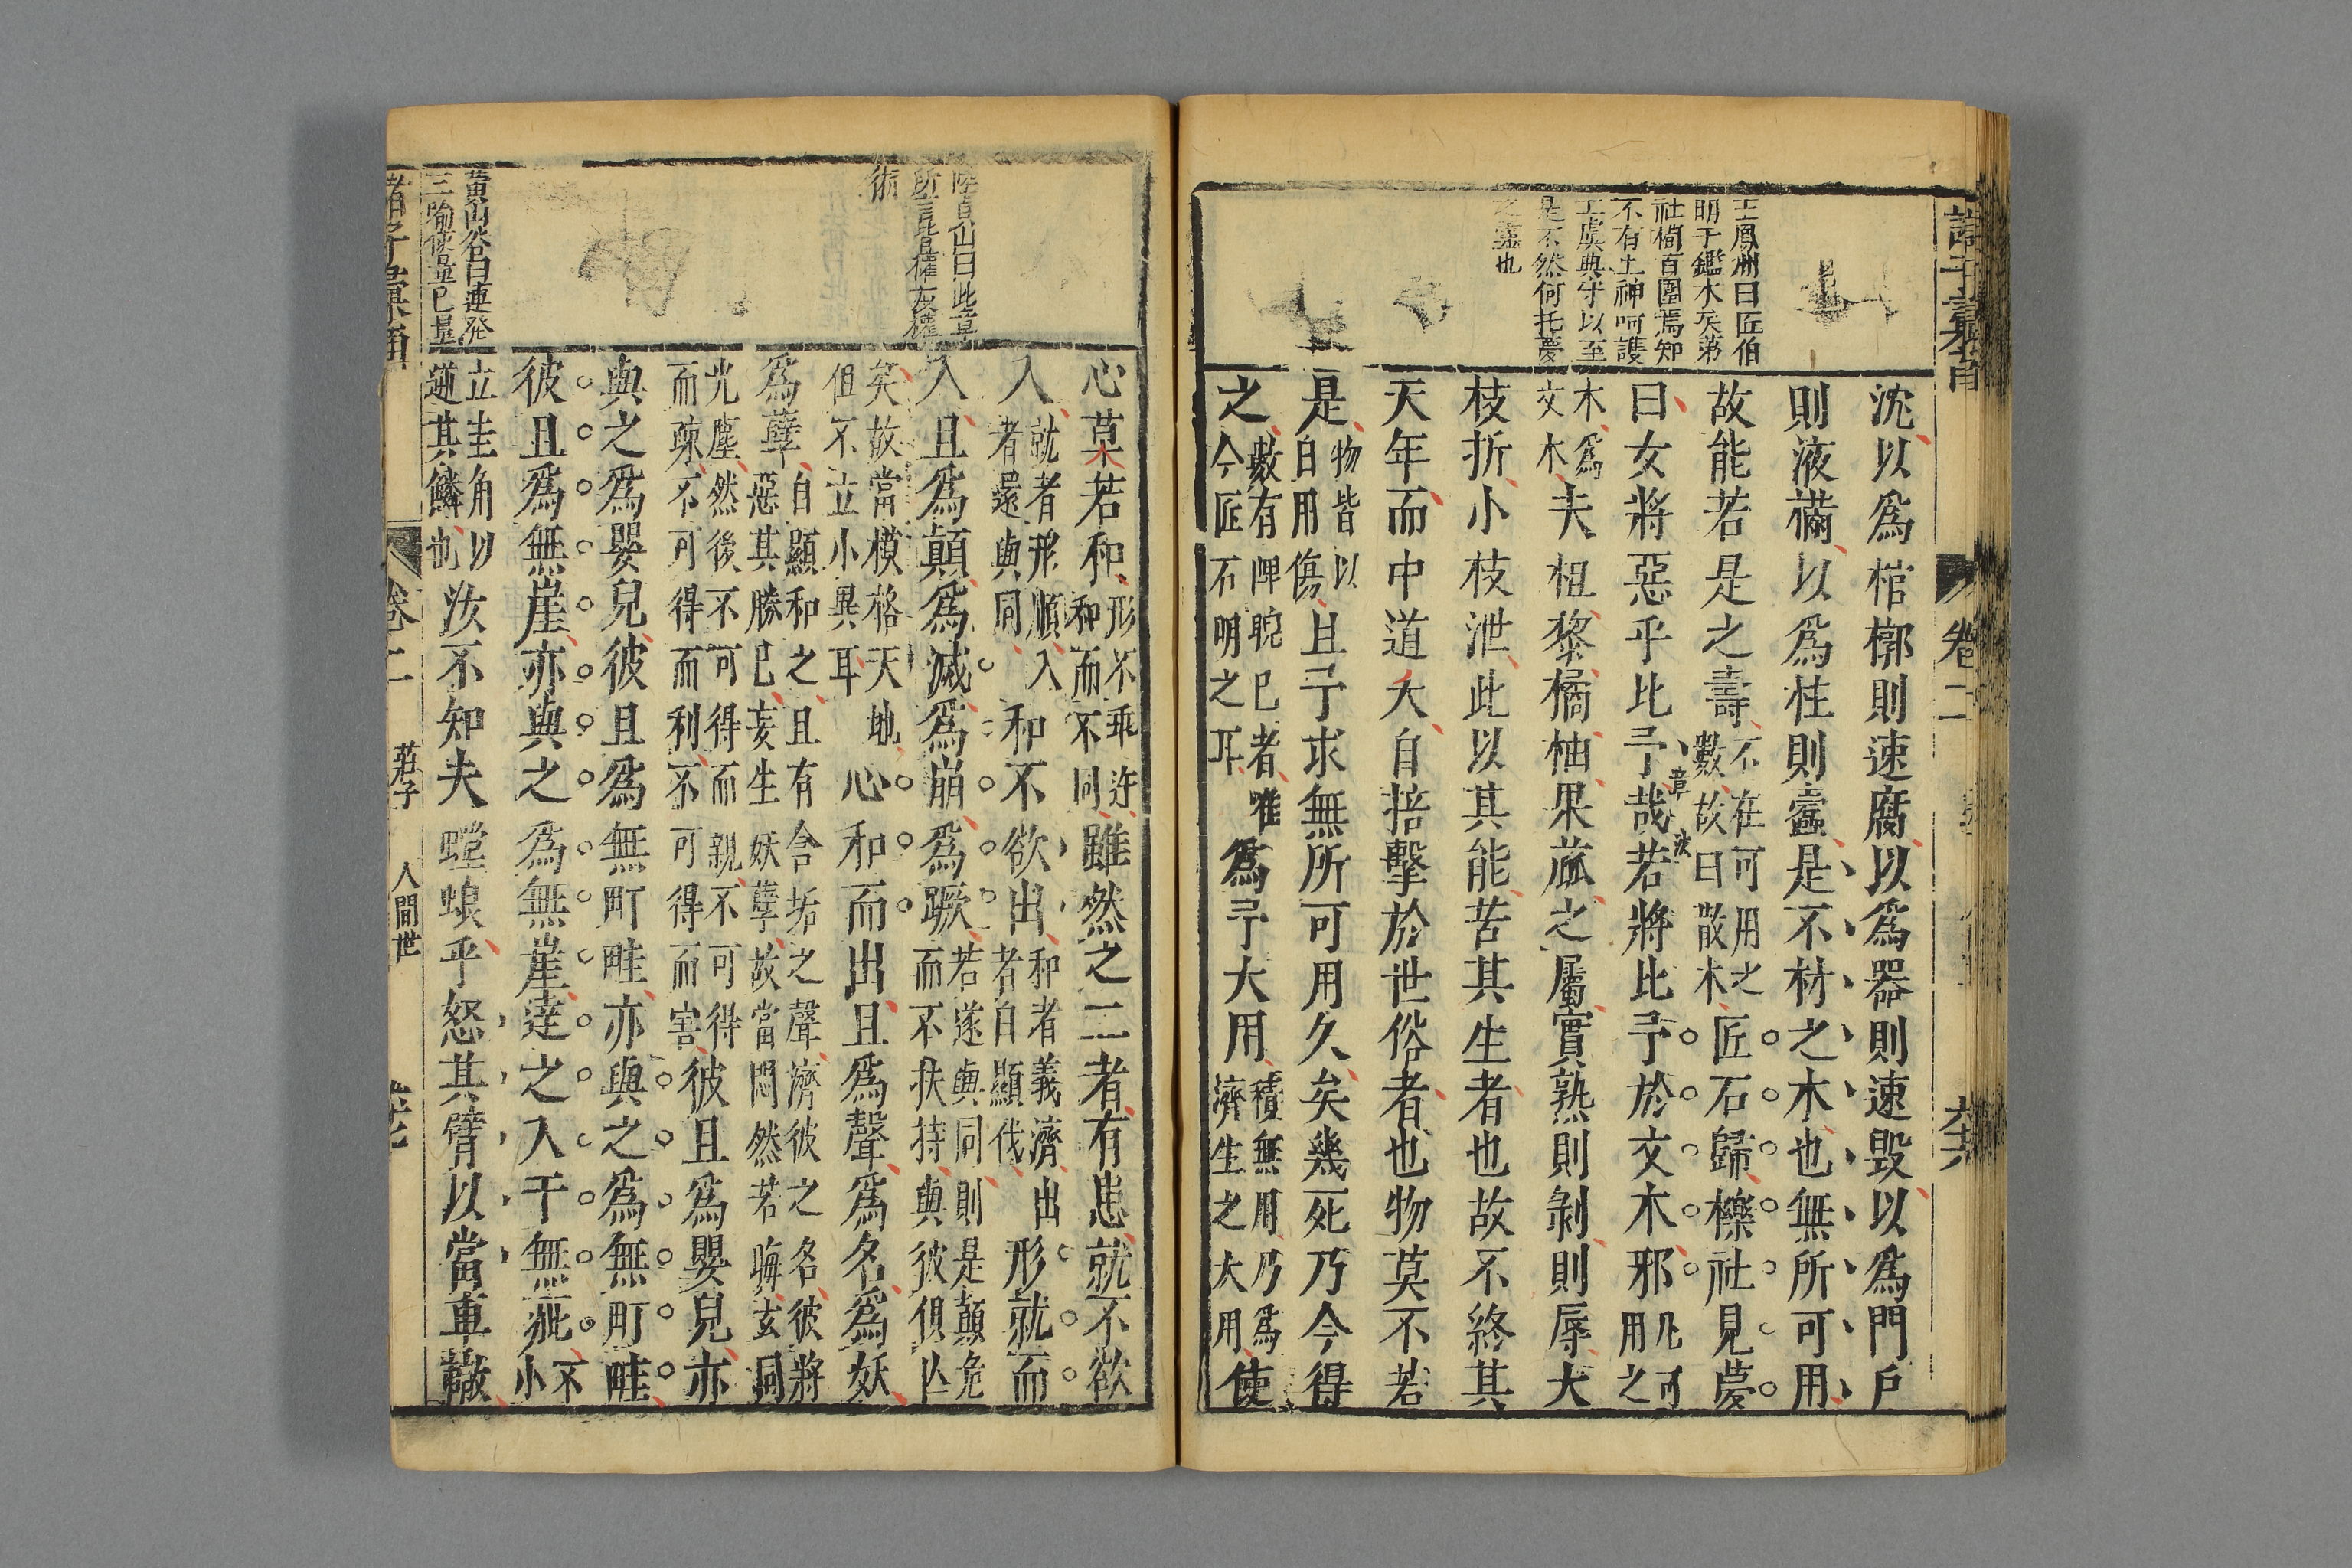 王鳳洲曰匠伯
明于鑑木矣第
社櫟百圍焉知
不有土神呵護
工虞典守以至
是不然何托夢
之靈也
沈以爲棺槨則速腐以爲器則速毀以爲門戶
則液樠以爲柱則蠹是不材之木也無所可用
故能若是之壽不在可用之數故曰散木匠石歸櫟社見夢
曰女將惡乎比予哉若將比予於文木邪凡可用之
木爲文木夫柤黎橘柚果蓏之屬實熟則剝則辱大
枝折小枝泄此以其能苦其生者也故不終其
天年而中道夭自掊擊於世俗者也物莫不若
是物皆以自用傷且予求無所可用久矣幾死乃今得
之數有睥睨已者唯今匠石明之耳爲予大用積無用乃爲濟生之大用使
卷二
陸貞山曰此章
所言皆權友權
術
黃山谷曰連發
三喻
心莫若和形不乖迕和而不同雖然之二者有患就不欲
入就者形順入者還與同和不欲出和者義濟出者自顯伐形就而
入且爲顛爲滅爲崩爲蹶若遂與同則是顛危而不扶持與彼俱亾
矣故當模格天地但不立小異耳心和而出且爲聲爲名爲妖
爲孽自顯和之且有含垢之聲濟彼之名彼將惡其勝已妄生妖孽故當悶然若晦玄同
光塵然後不可得而親不可得而疎不可得而利不可得而害彼且爲嬰兒亦
與之爲嬰兒彼且爲無町畦亦與之爲無町畦
彼且爲無崖亦與之爲無崖達之入于無疵不小
立圭角以逆其鱗也汝不知夫螳蜋乎怒其臂以當車轍
卷二 莊子 人間世